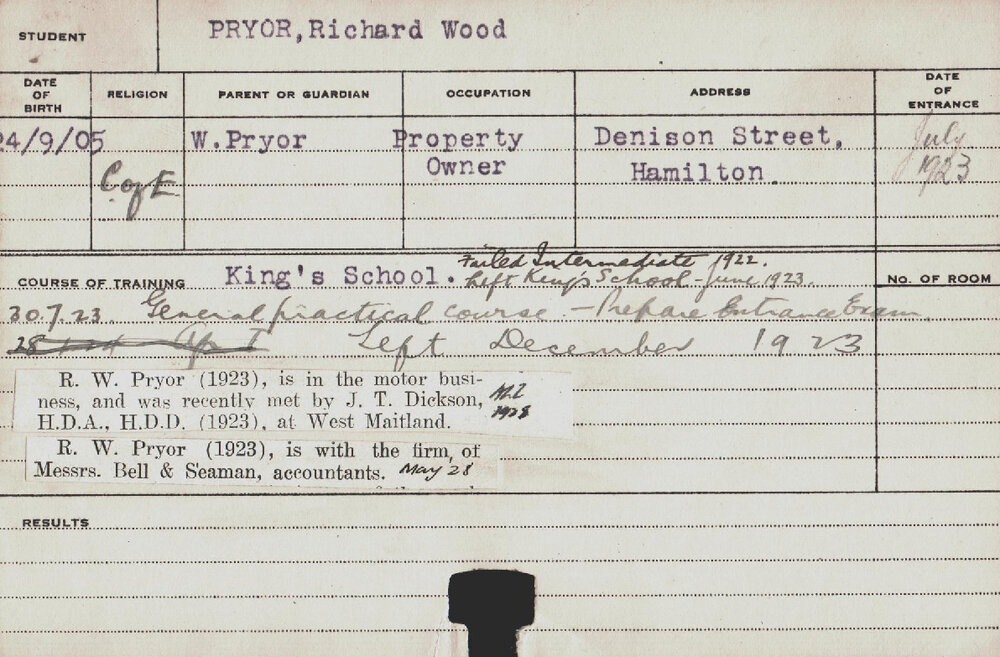 STUDENT PRYOR, Richard Wood
DATE OF BIRTH RELIGION PARENT OR GUARDIAN OCCUPATION ADDRESS DATE OF ENTRANCE
24/9/05 W.Pryor Property Denison Street, July
C of E Owner Hamilton. 1923
Failed Intermediate 1922.
COURSE OF TRAINING King's School. Left King's School - June 1923. NO. OF ROOM
30.7.23. General practical course. - Prepare Entrance Exam.
28 Left December 1923
R. W. Pryor (1923), is in the motor busi-
ness, and was recently met by J. T. Dickson,
H.D.A., H.D.D. (1923), at West Maitland.
1928
R. W. Pryor (1923), is with the firm of
Messrs. Bell & Seaman, accountants. May 28
RESULTS